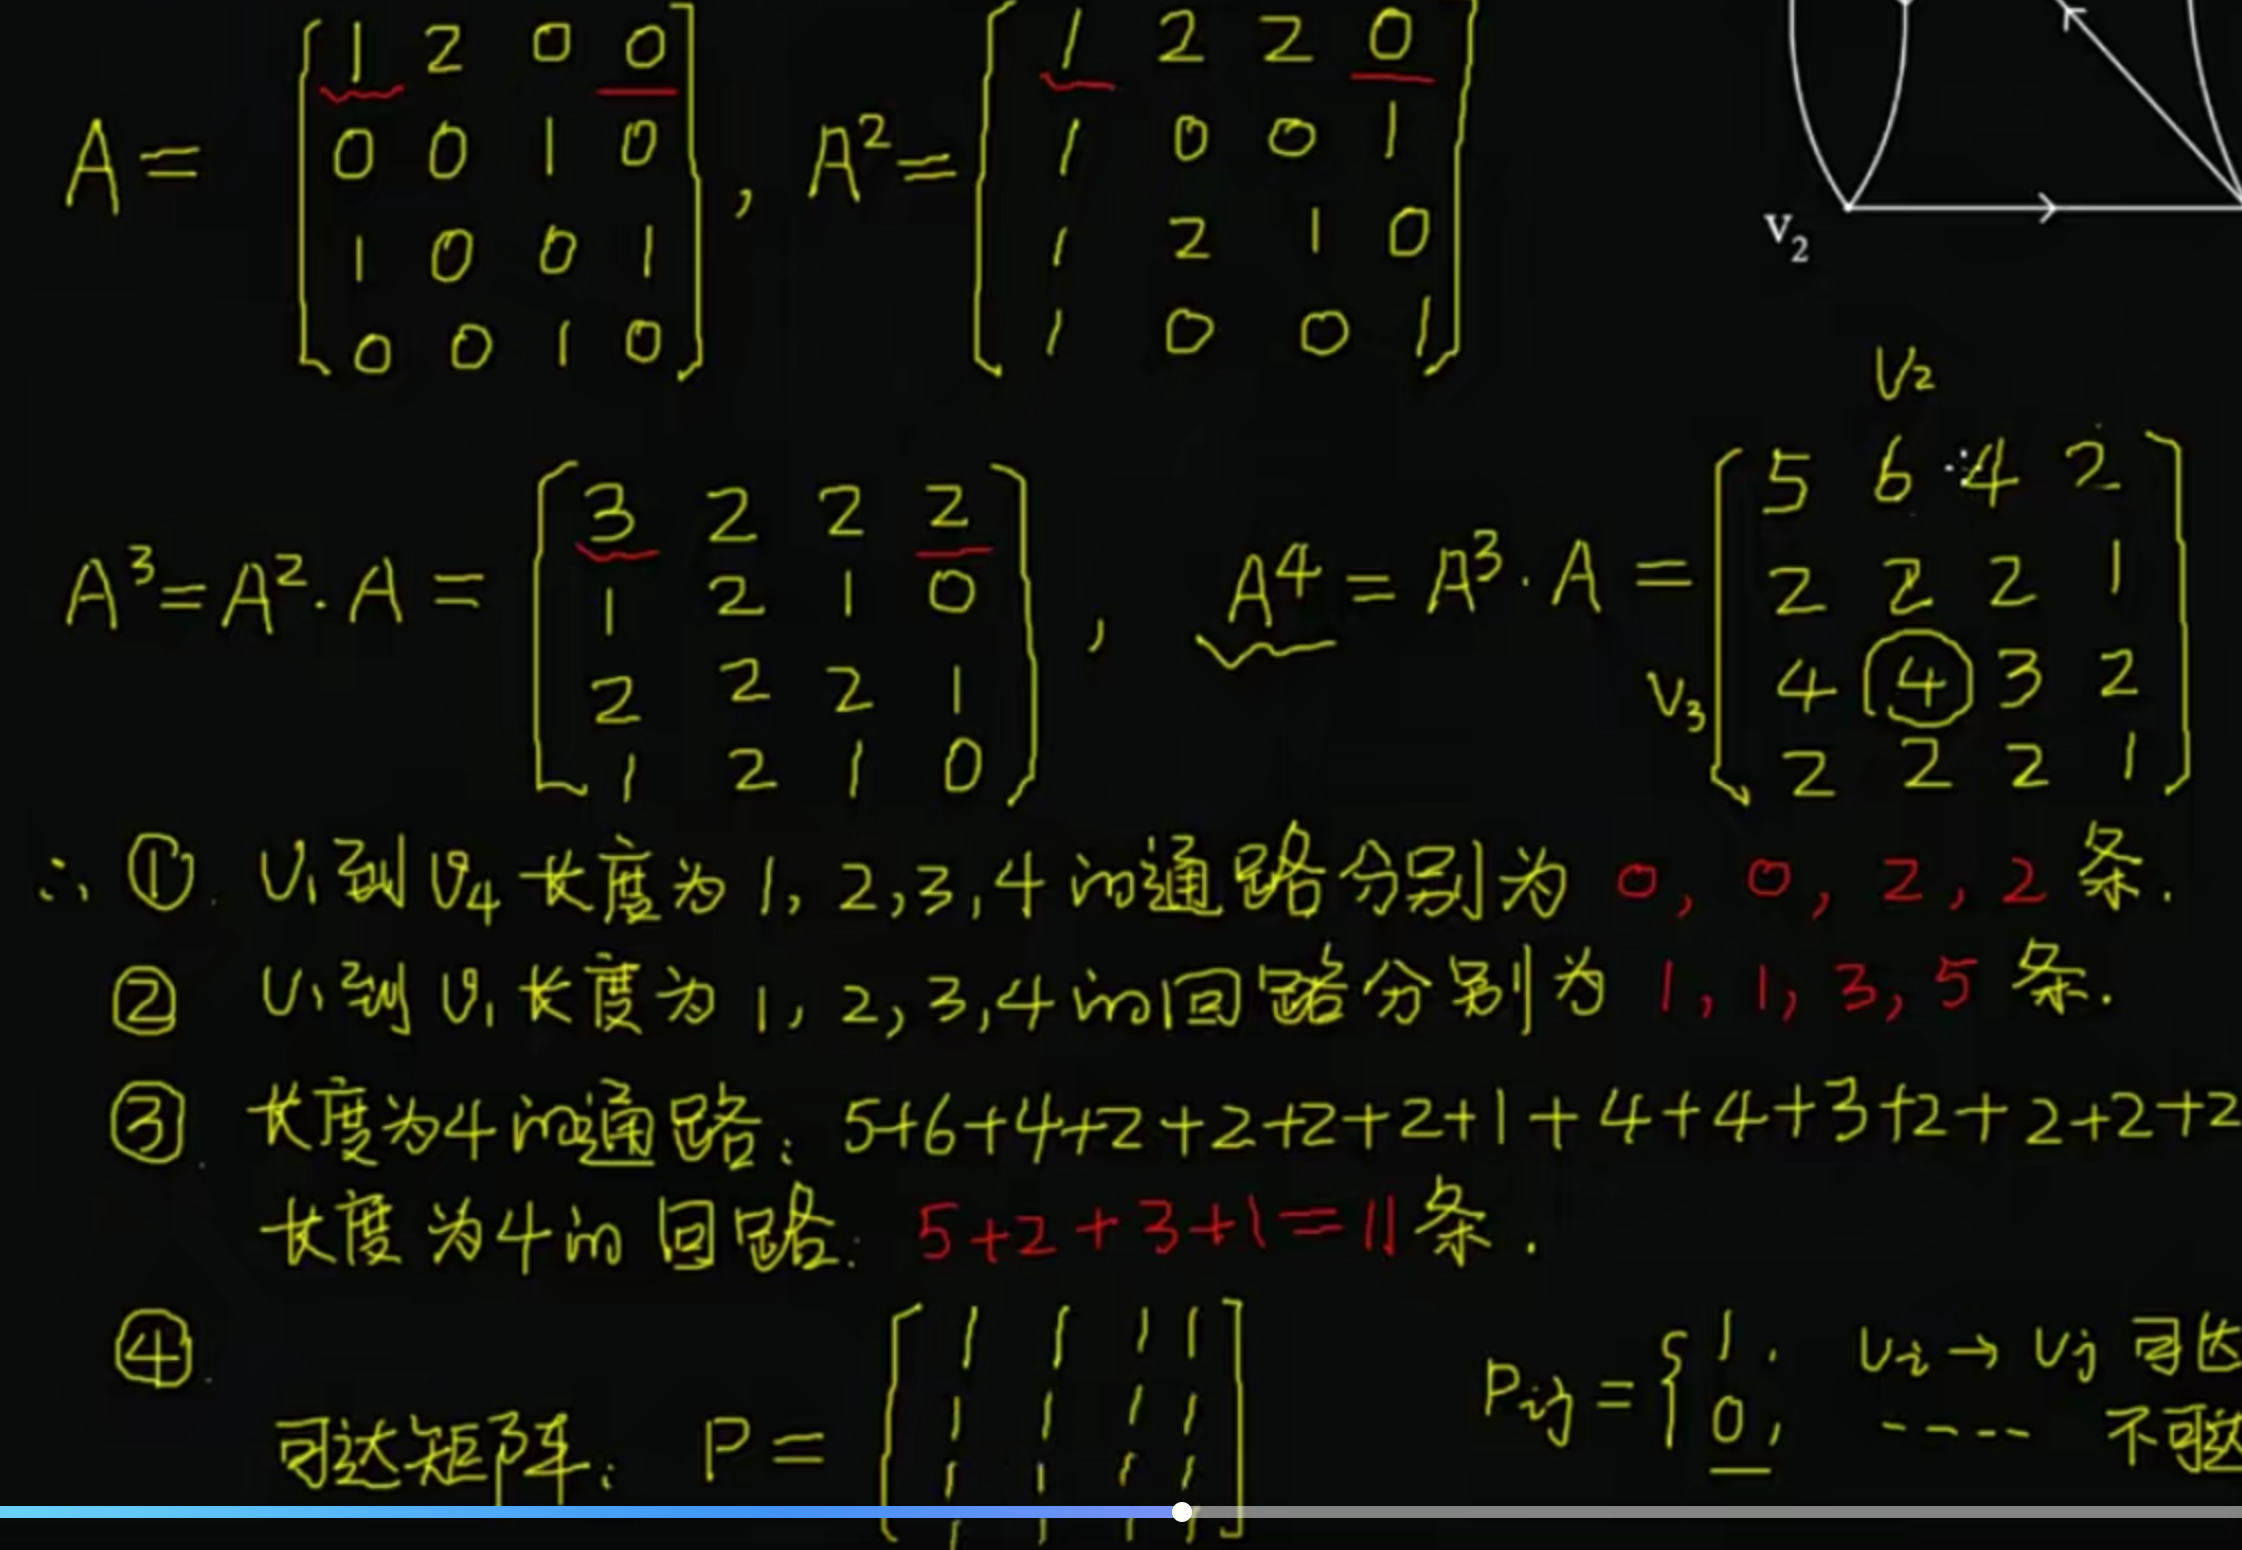 A = [1 2 0 0
0 0 1 0
1 0 0 1
0 0 1 0] , A² = [1 2 2 0
1 0 0 1
1 2 1 0
1 0 0 1]
v₂
A³ = A² · A = [3 2 2 2
1 2 1 0
2 2 2 1
1 2 1 0] , A⁴ = A³ · A = [5 6 4 2
2 2 2 1
4 4 3 2
2 2 2 1]
V₂
V₃
∴ ① V₁到V₄长度为1, 2, 3, 4的通路分别为 0, 0, 2, 2 条.
② V₁到V₁长度为1, 2, 3, 4的回路分别为 1, 1, 3, 5 条.
③ 长度为4的通路: 5+6+4+2+2+2+2+1+4+4+3+2+2+2+2
长度为4的回路: 5+2+3+1=11条.
④
可达矩阵: P = [1 1 1 1
1 1 1 1
1 1 1 1
1 1 1 1]
Pij = { 1, Vi → Vj 可达
0, ---- 不可达